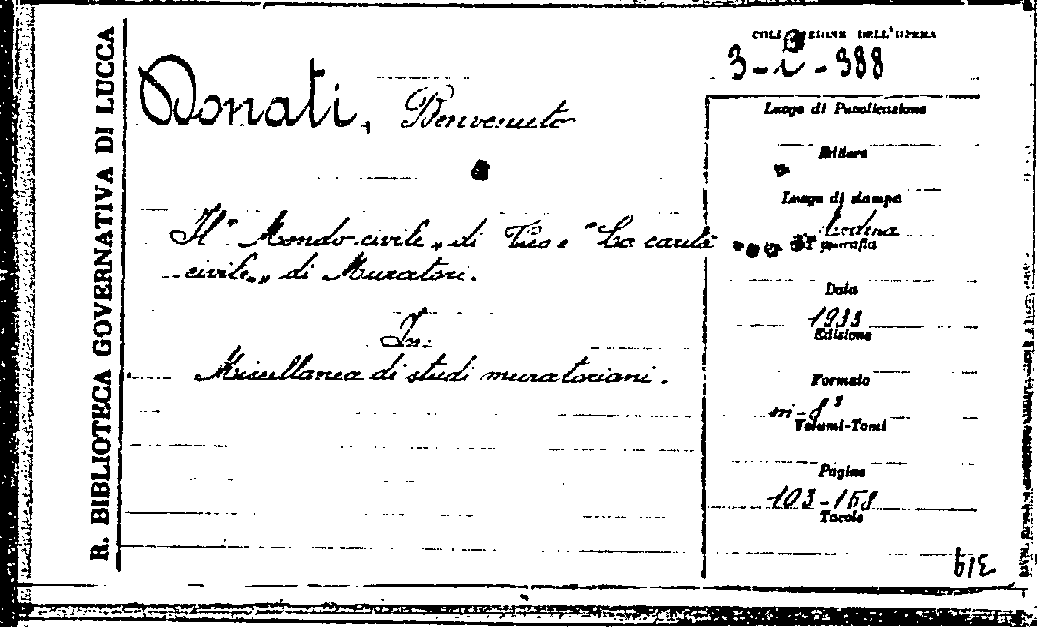 R. BIBLIOTECA GOVERNATIVA DI LUCCA
COLLEZIONE DELL'OPERA
3-i-388
Donati, Benvenuto
Il "Mondo civile„ di Vico e "La carità
civile„ di Muratori.
In:
Miscellanea di studi muratoriani.
Luogo di Pubblicazione
Editore
Luogo di stampa
Modena
Tipografia
Data
1933
Edizione
Formato
in-8°
Volumi-Tomi
Pagine
103-158
Tavole